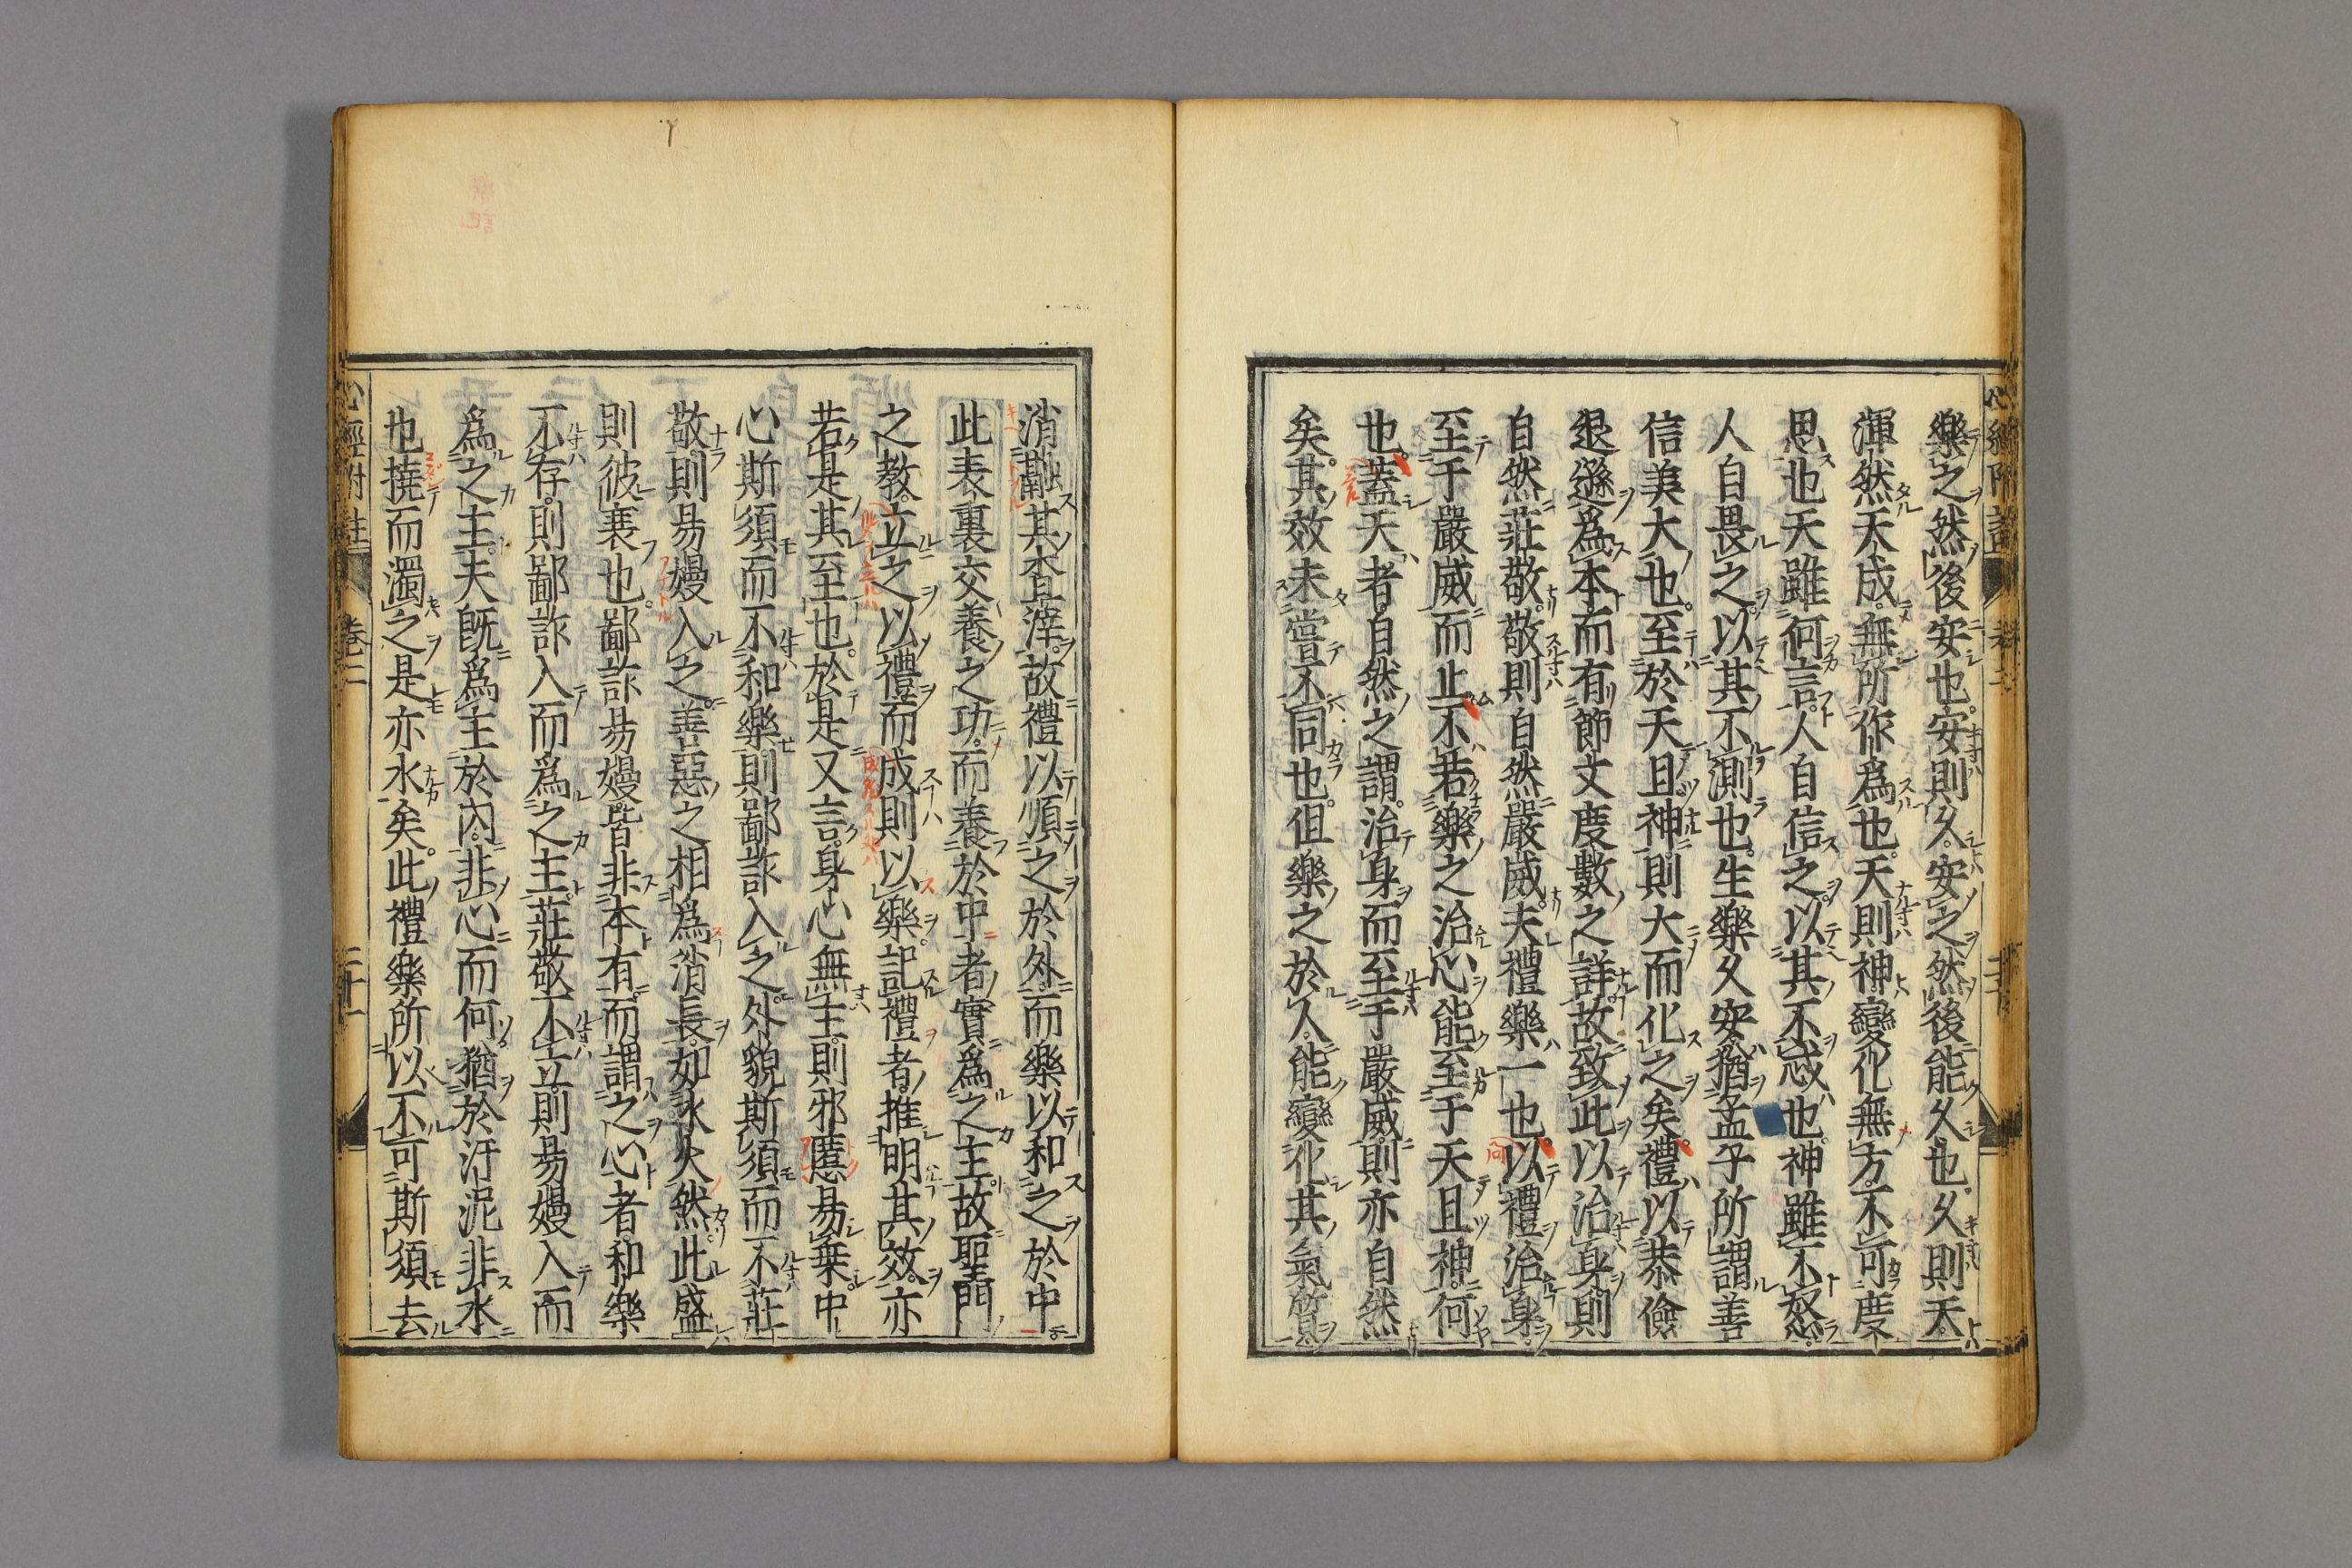 樂之然後安也安則久安之然後能久也久則天
渾然天成無所作爲也天則神變化無方不可度
思也天雖何言人自信之以其不忒也神雖不怒
人自畏之以其不測也生樂久安猶孟子所謂善
信美大也至於天且神則大而化之矣禮以恭儉
退遜爲本而有節文度數之詳故致此以治身則
自然莊敬敬則自然嚴威夫禮樂一也以禮治身
至于嚴威而止不若樂之治心能至于天且神何
也蓋天者自然之謂治身而至于嚴威則亦自然
矣其效未嘗不同也但樂之於人能變化其氣質
消融其査滓故禮以順之於外而樂以和之於中
此表裏交養之功而養於中者實爲之主故聖門
之教立之以禮而成則以樂記禮者推明其效亦
若是其至也於是又言身心無主則邪慝易乗中
心斯須而不和樂則鄙詐入之外貌斯須而不莊
敬則易嫚入之善惡之相爲消長如水火然此盛
則彼衰也鄙詐易嫚皆非本有而謂之心者和樂
不存則鄙詐入而爲之主莊敬不立則易嫚入而
爲之主夫旣爲主於內非心而何猶於汙泥非水
也撓而濁之是亦水矣此禮樂所以不可斯須去
心經附註 卷二 二十一